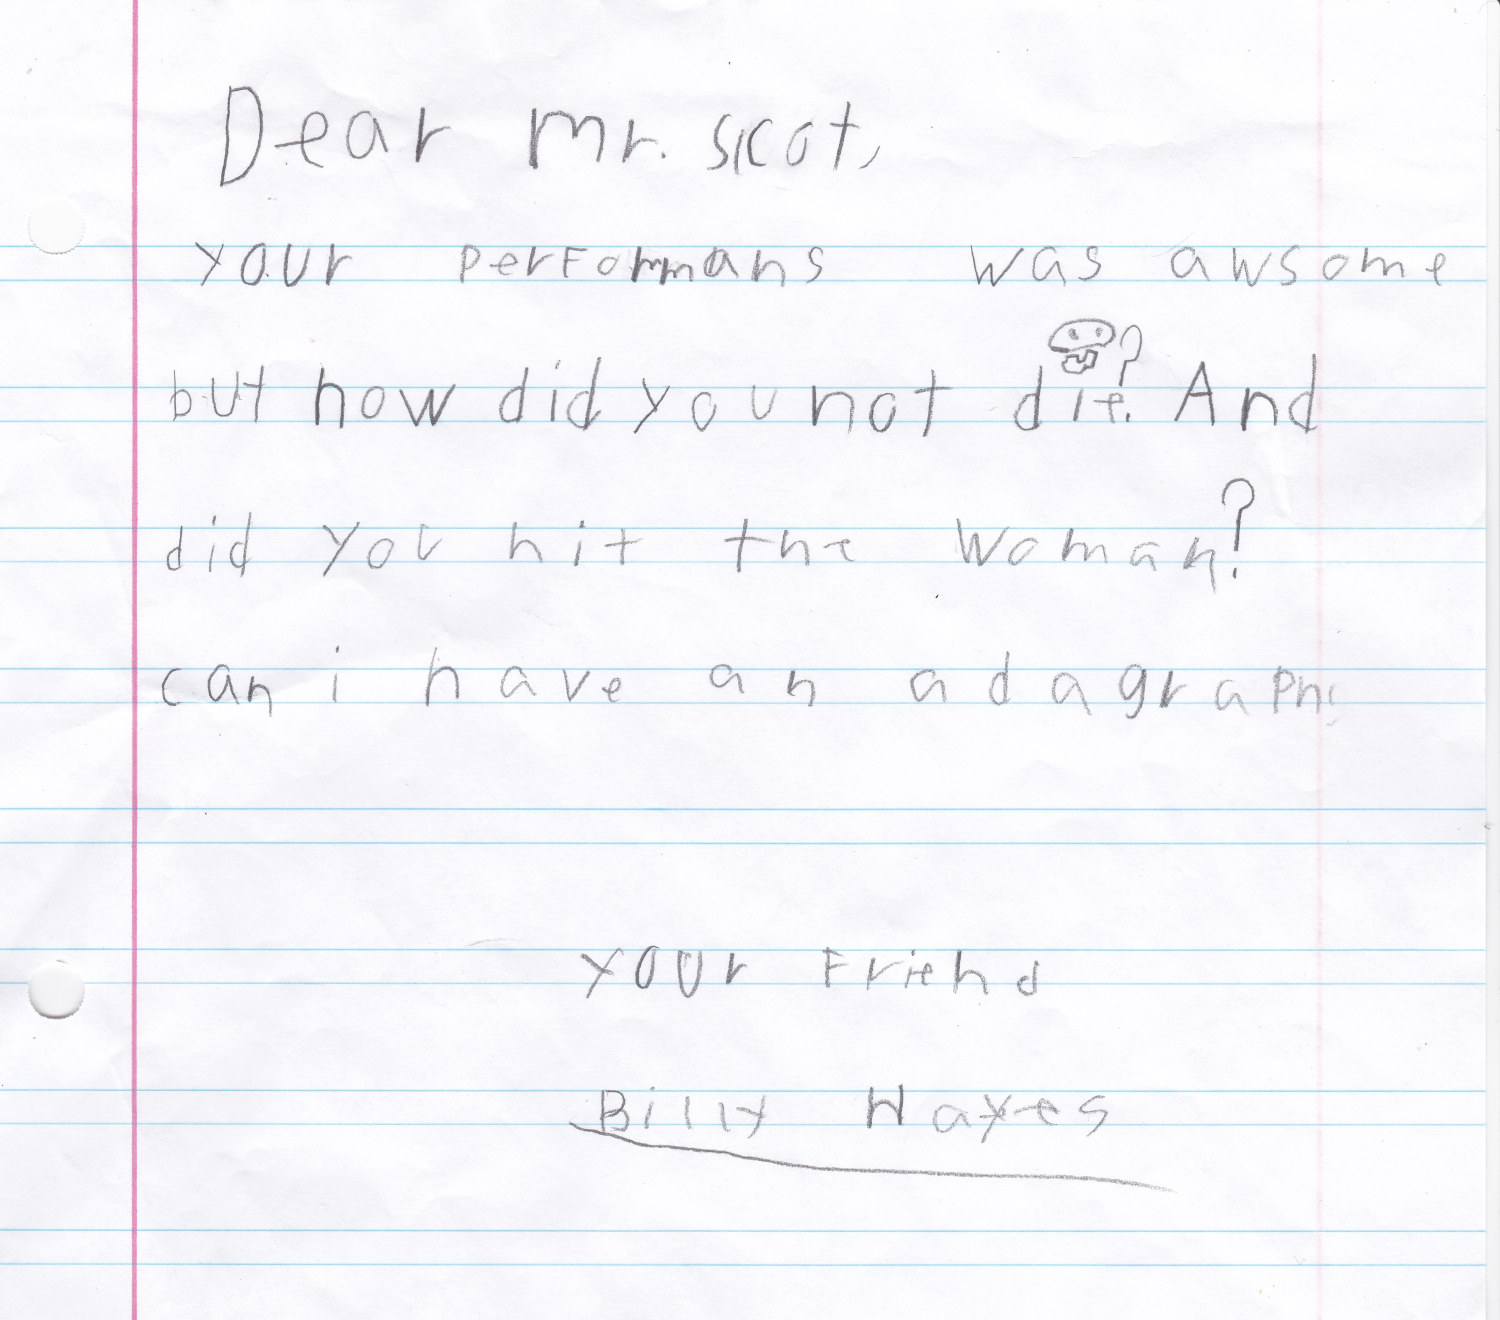 Dear mr. Scot,
your performans was awsome
but how did you not die? And
did you hit the woman?
can i have an adagraph
your Friend
Billy Hayes